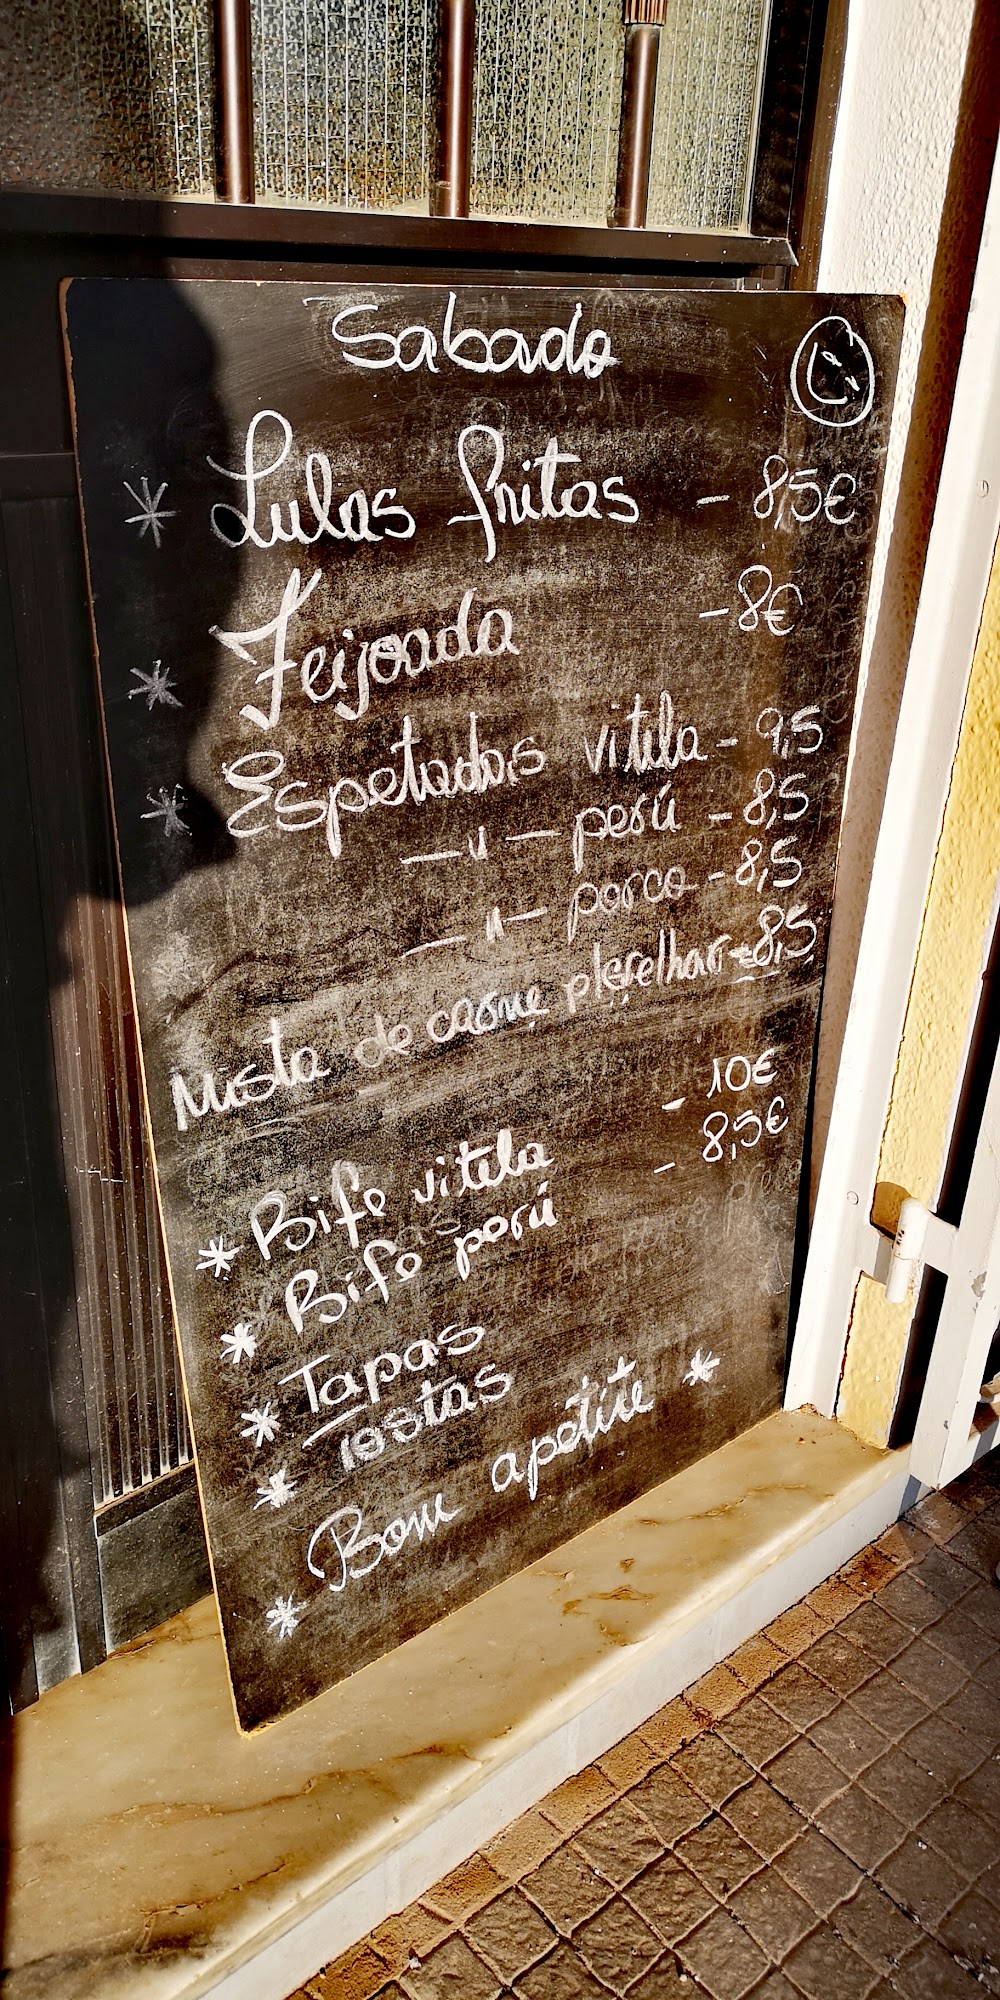 Sabado
* Lulas fritas - 8,5€
* Feijoada - 8€
* Espetadas vitela - 9,5
—"— perú - 8,5
—"— porco - 8,5
Mista de carne p/grelhar - 8,5
* Bife vitela - 10€
* Bife perú - 8,5€
* Tapas
* Tostas
* Bom apetite *